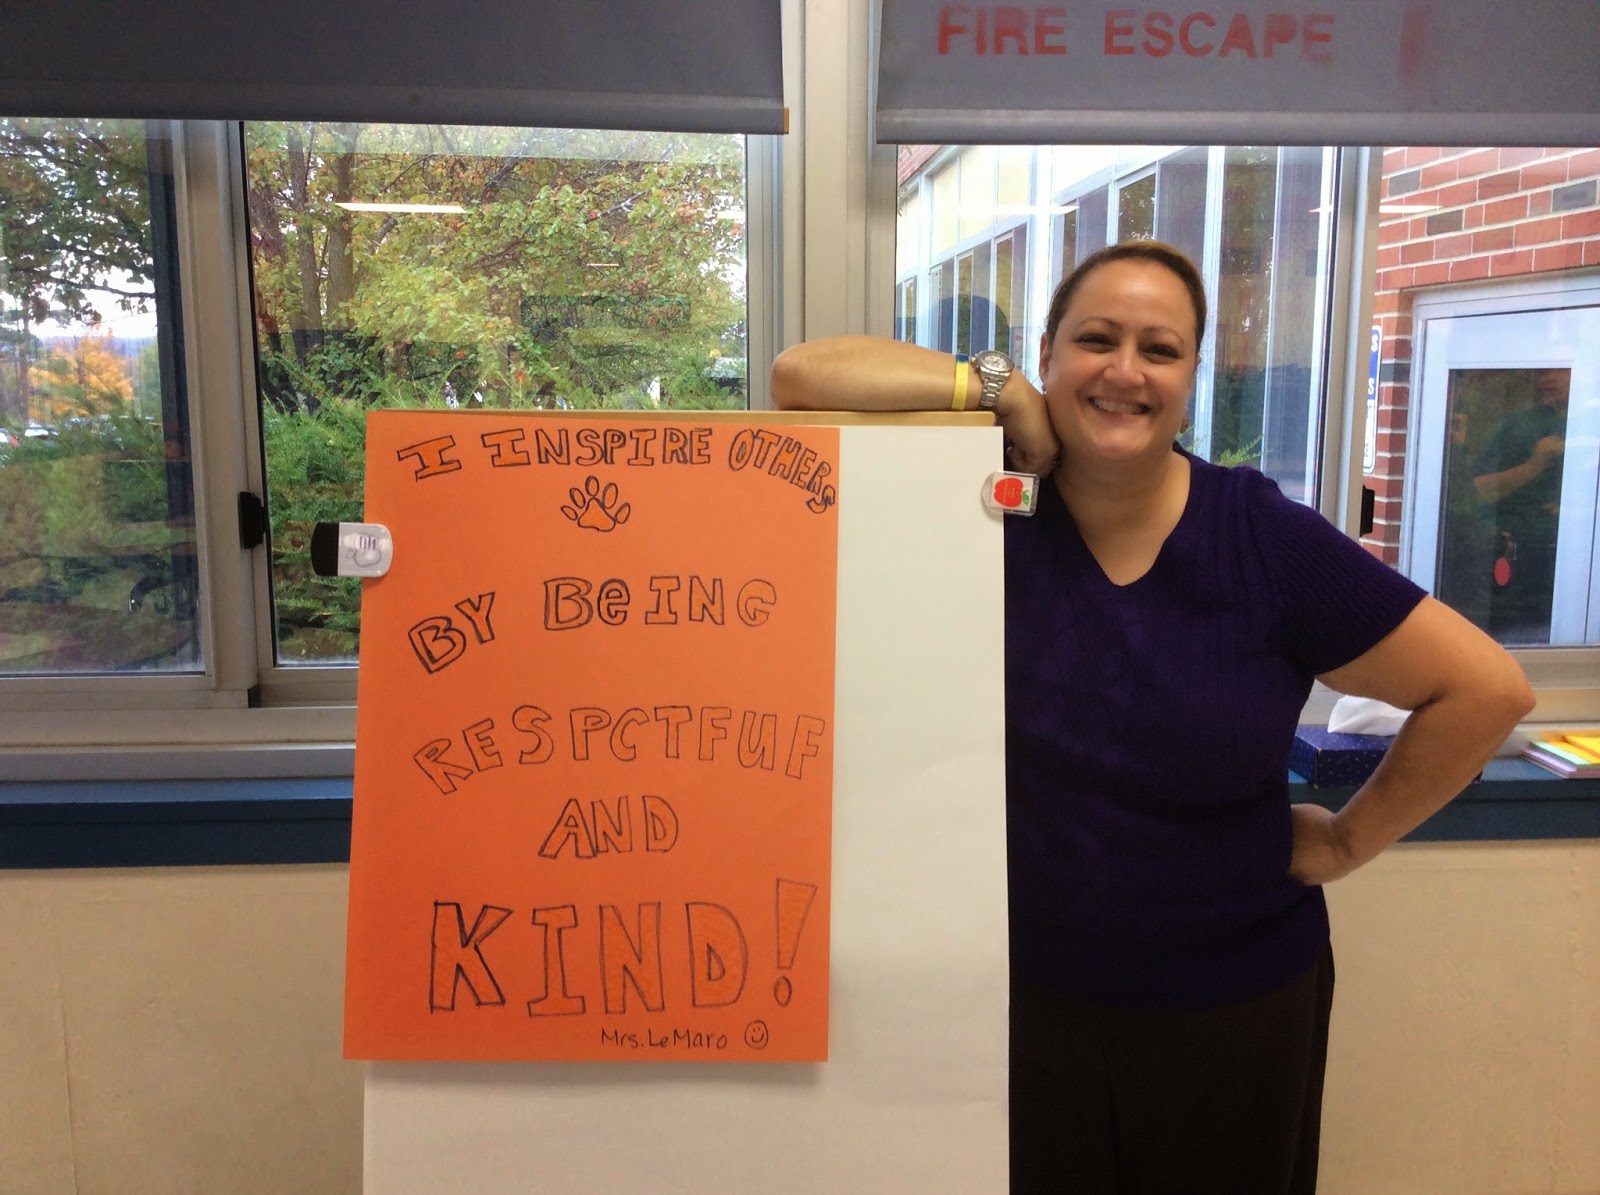 FIRE ESCAPE
I INSPIRE OTHERS
BY BeING
RESPCTFUF
AND
KIND!
Mrs. LeMaro